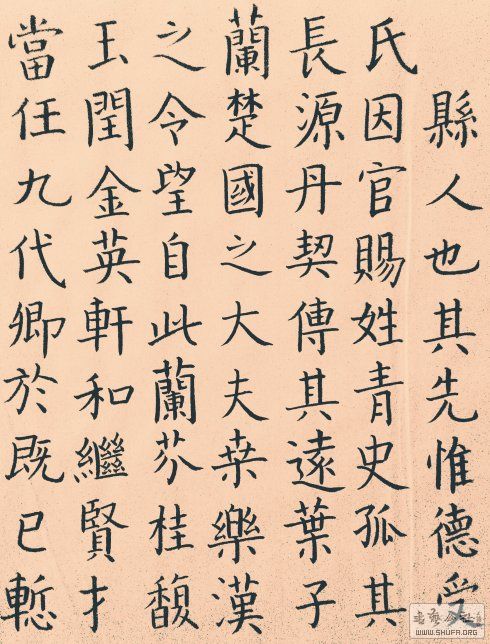 縣人也其先惟德受
氏因官賜姓青史孤其
長源丹契傳其遠葉子
蘭楚國之大夫桒樂漢
之令望自此蘭芬桂馥
玉閏金英軒和繼賢才
當任九代卿於既已慙
WWW.SHUFA.COM